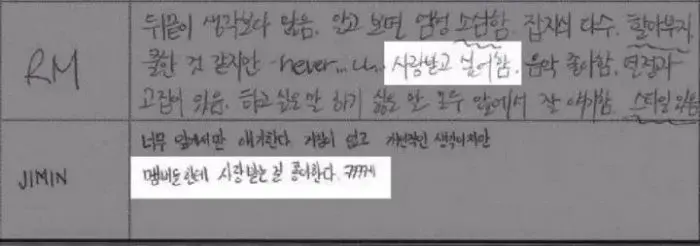 뒤끝이 생각보다 있음. 알고 보면 엄청 소심함. 다수. 할아부지
RM
쿨한 것 같지만 never... 사랑받고 싶어함. 음악 좋아함.
고집이 있음. 하고 싶은 말 하기 싫은 말 모두 앞에서 잘 얘기함. 스타일 있음
너무 앞에서만 얘기한다 없고 개인적인 생각이지만
JIMIN
멤버들한테 사랑받는 걸 좋아한다.